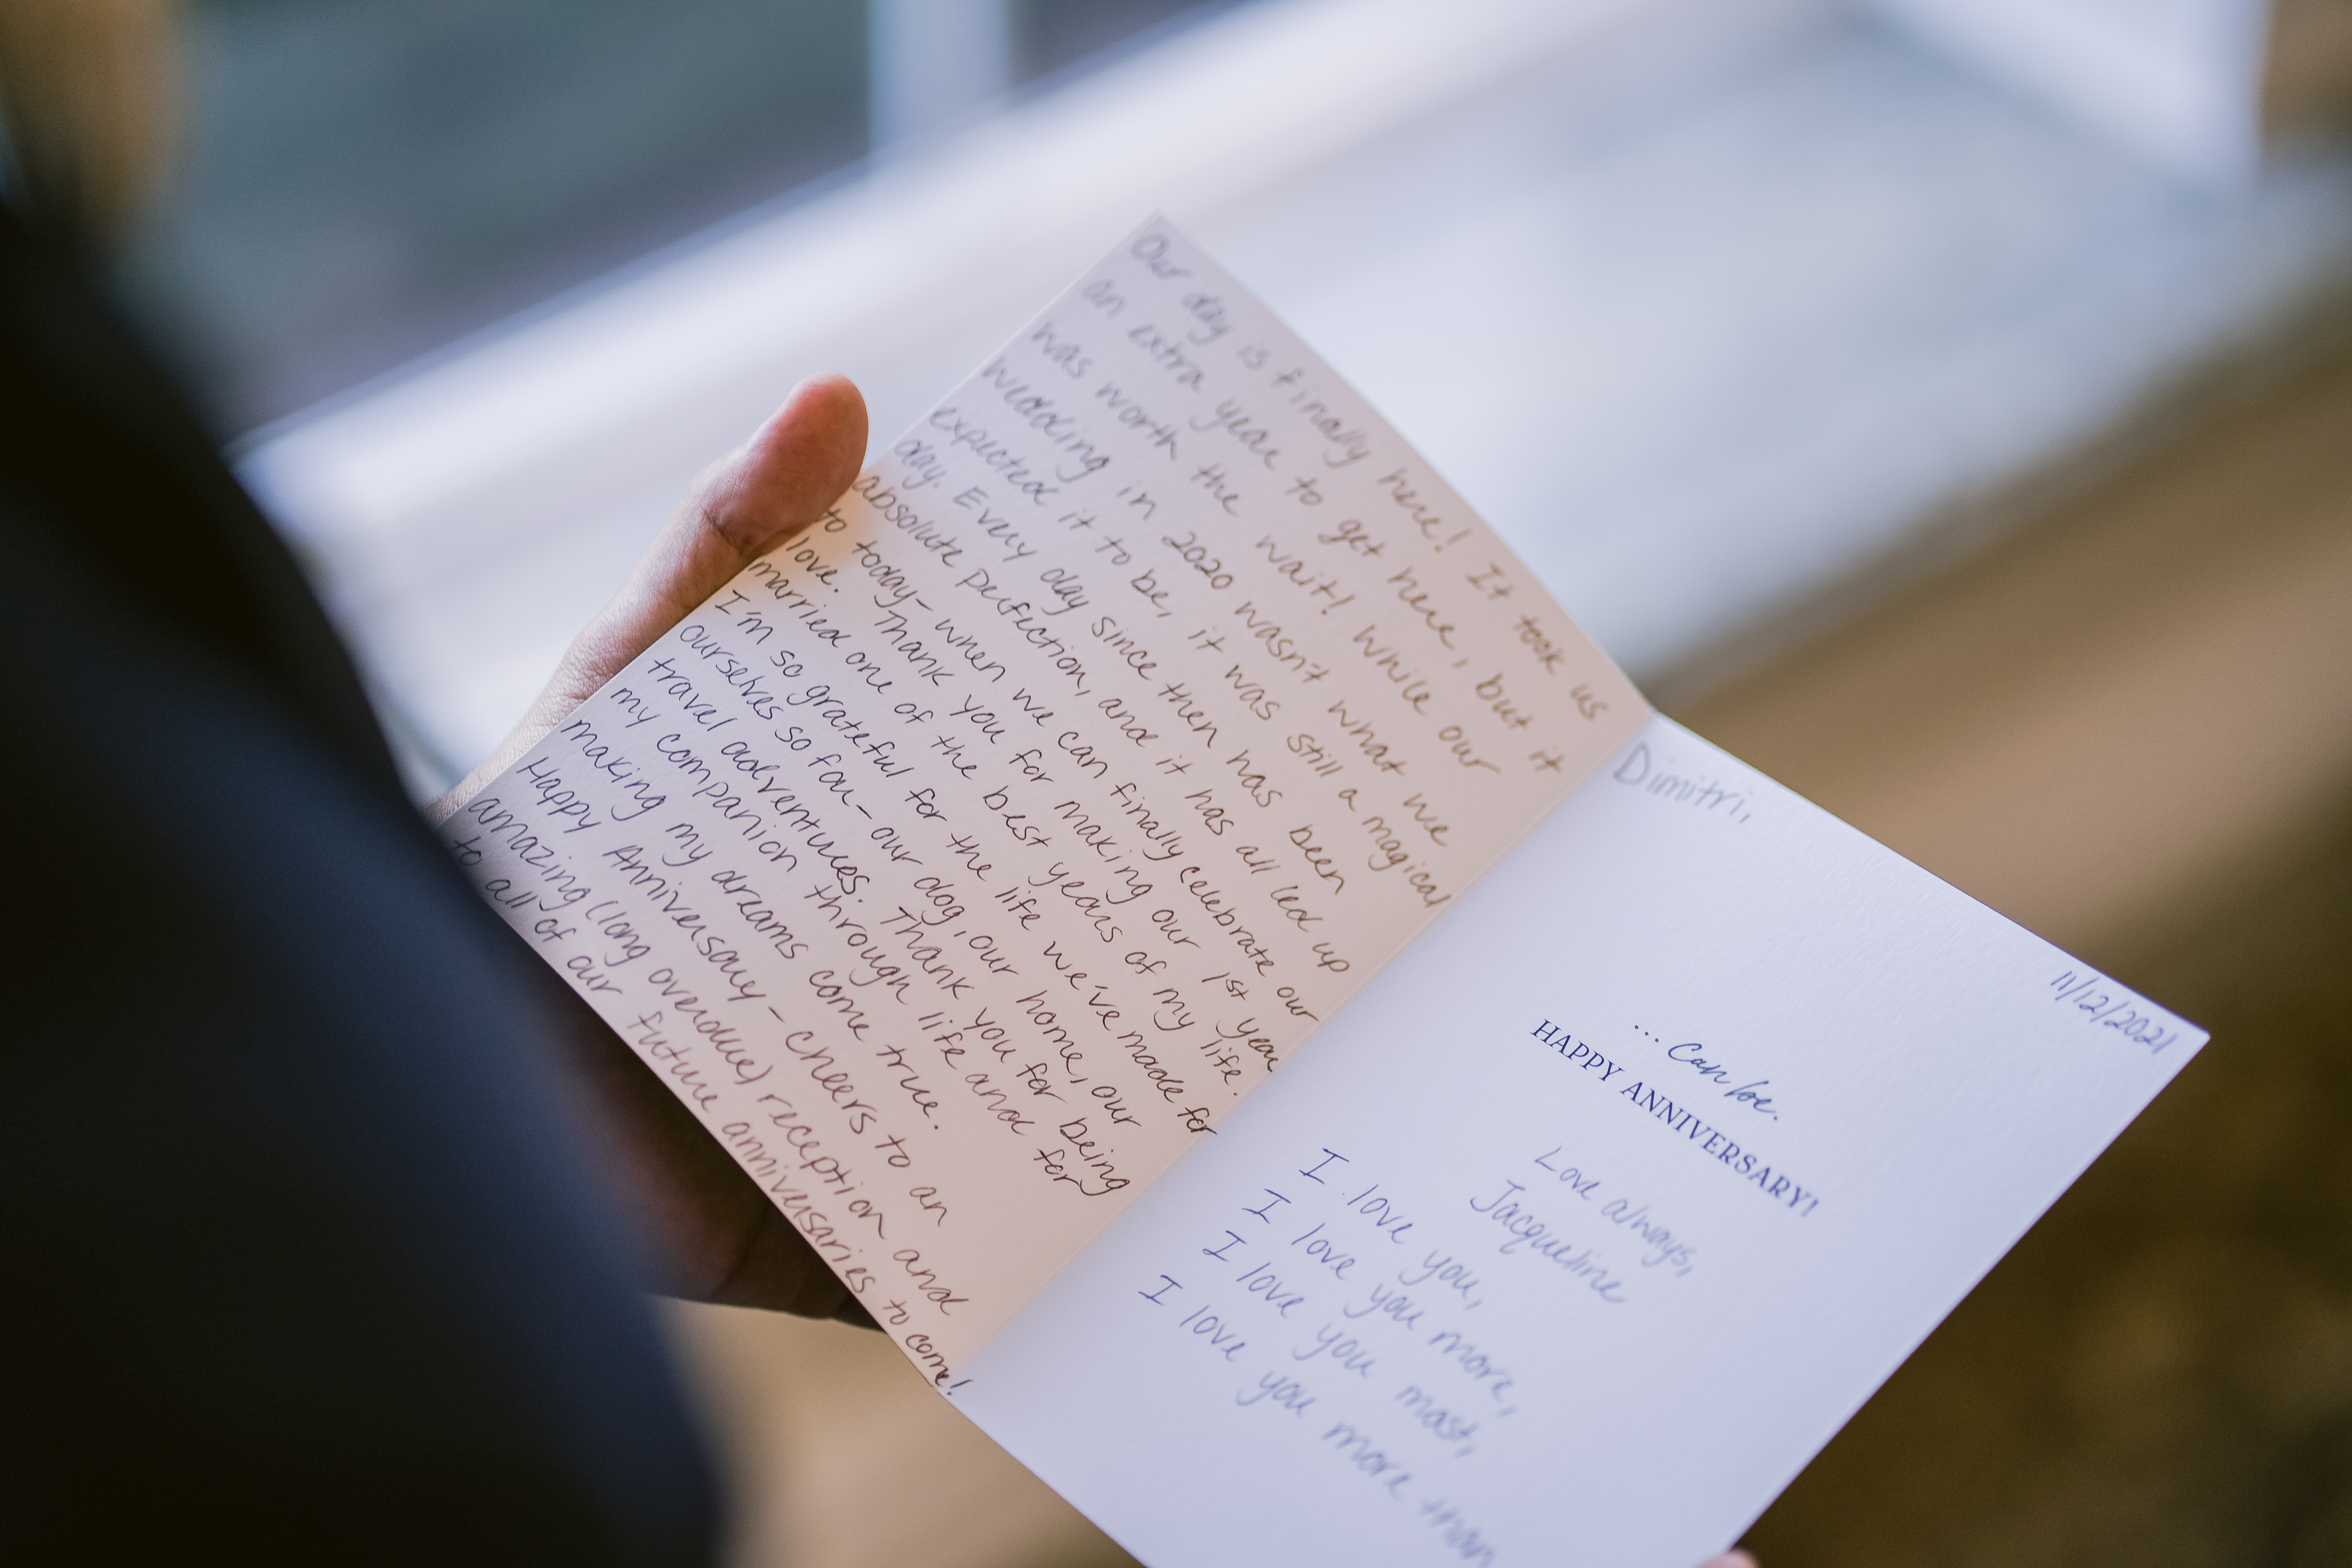 Our day is finally here! It took us
an extra year to get here, but it
was worth the wait! While our
wedding in 2020 wasn't what we
expected it to be, it was still a magical
day. Every day since then has been
absolute perfection, and it has all led up
to today- when we can finally celebrate our
love. Thank you for making our 1st year
married one of the best years of my life.
I'm so grateful for the life we've made for
ourselves so far- our dog, our home, our
travel adventures. Thank you for being
my companion through life and for
making my dreams come true.
Happy Anniversary- cheers to an
amazing (long overdue) reception and
to all of our future anniversaries to come!
11/12/2021
Dimitri,
... Can be.
HAPPY ANNIVERSARY!
Love always,
Jacqueline
I love you,
I love you more,
I love you most,
I love you more than